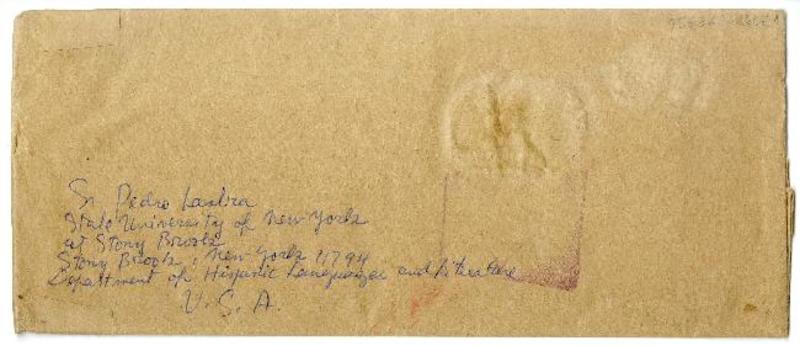 Sr Pedro Lastra
State University of New York
at Stony Brook
Stony Brook, New York 11794
Department of Hispanic Languages and Literature
U.S.A.